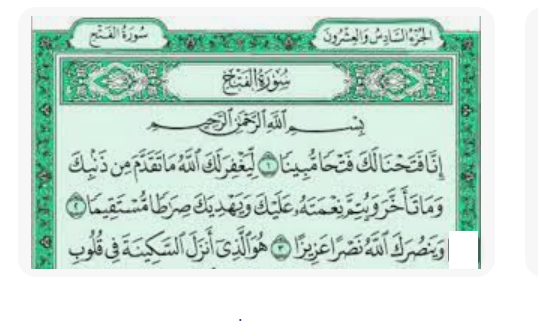 الجزء السادس والعشرون
سورة الفتح
سُورَةُ الفَتْحِ
بِسْمِ اللَّهِ الرَّحْمَٰنِ الرَّحِيمِ
إِنَّا فَتَحْنَا لَكَ فَتْحًا مُّبِينًا ١ لِّيَغْفِرَ لَكَ اللَّهُ مَا تَقَدَّمَ مِن ذَنۢبِكَ
وَمَا تَأَخَّرَ وَيُتِمَّ نِعْمَتَهُۥ عَلَيْكَ وَيَهْدِيَكَ صِرَٰطًا مُّسْتَقِيمًا ٢
وَيَنصُرَكَ اللَّهُ نَصْرًا عَزِيزًا ٣ هُوَ الَّذِىٓ أَنزَلَ السَّكِينَةَ فِى قُلُوبِ